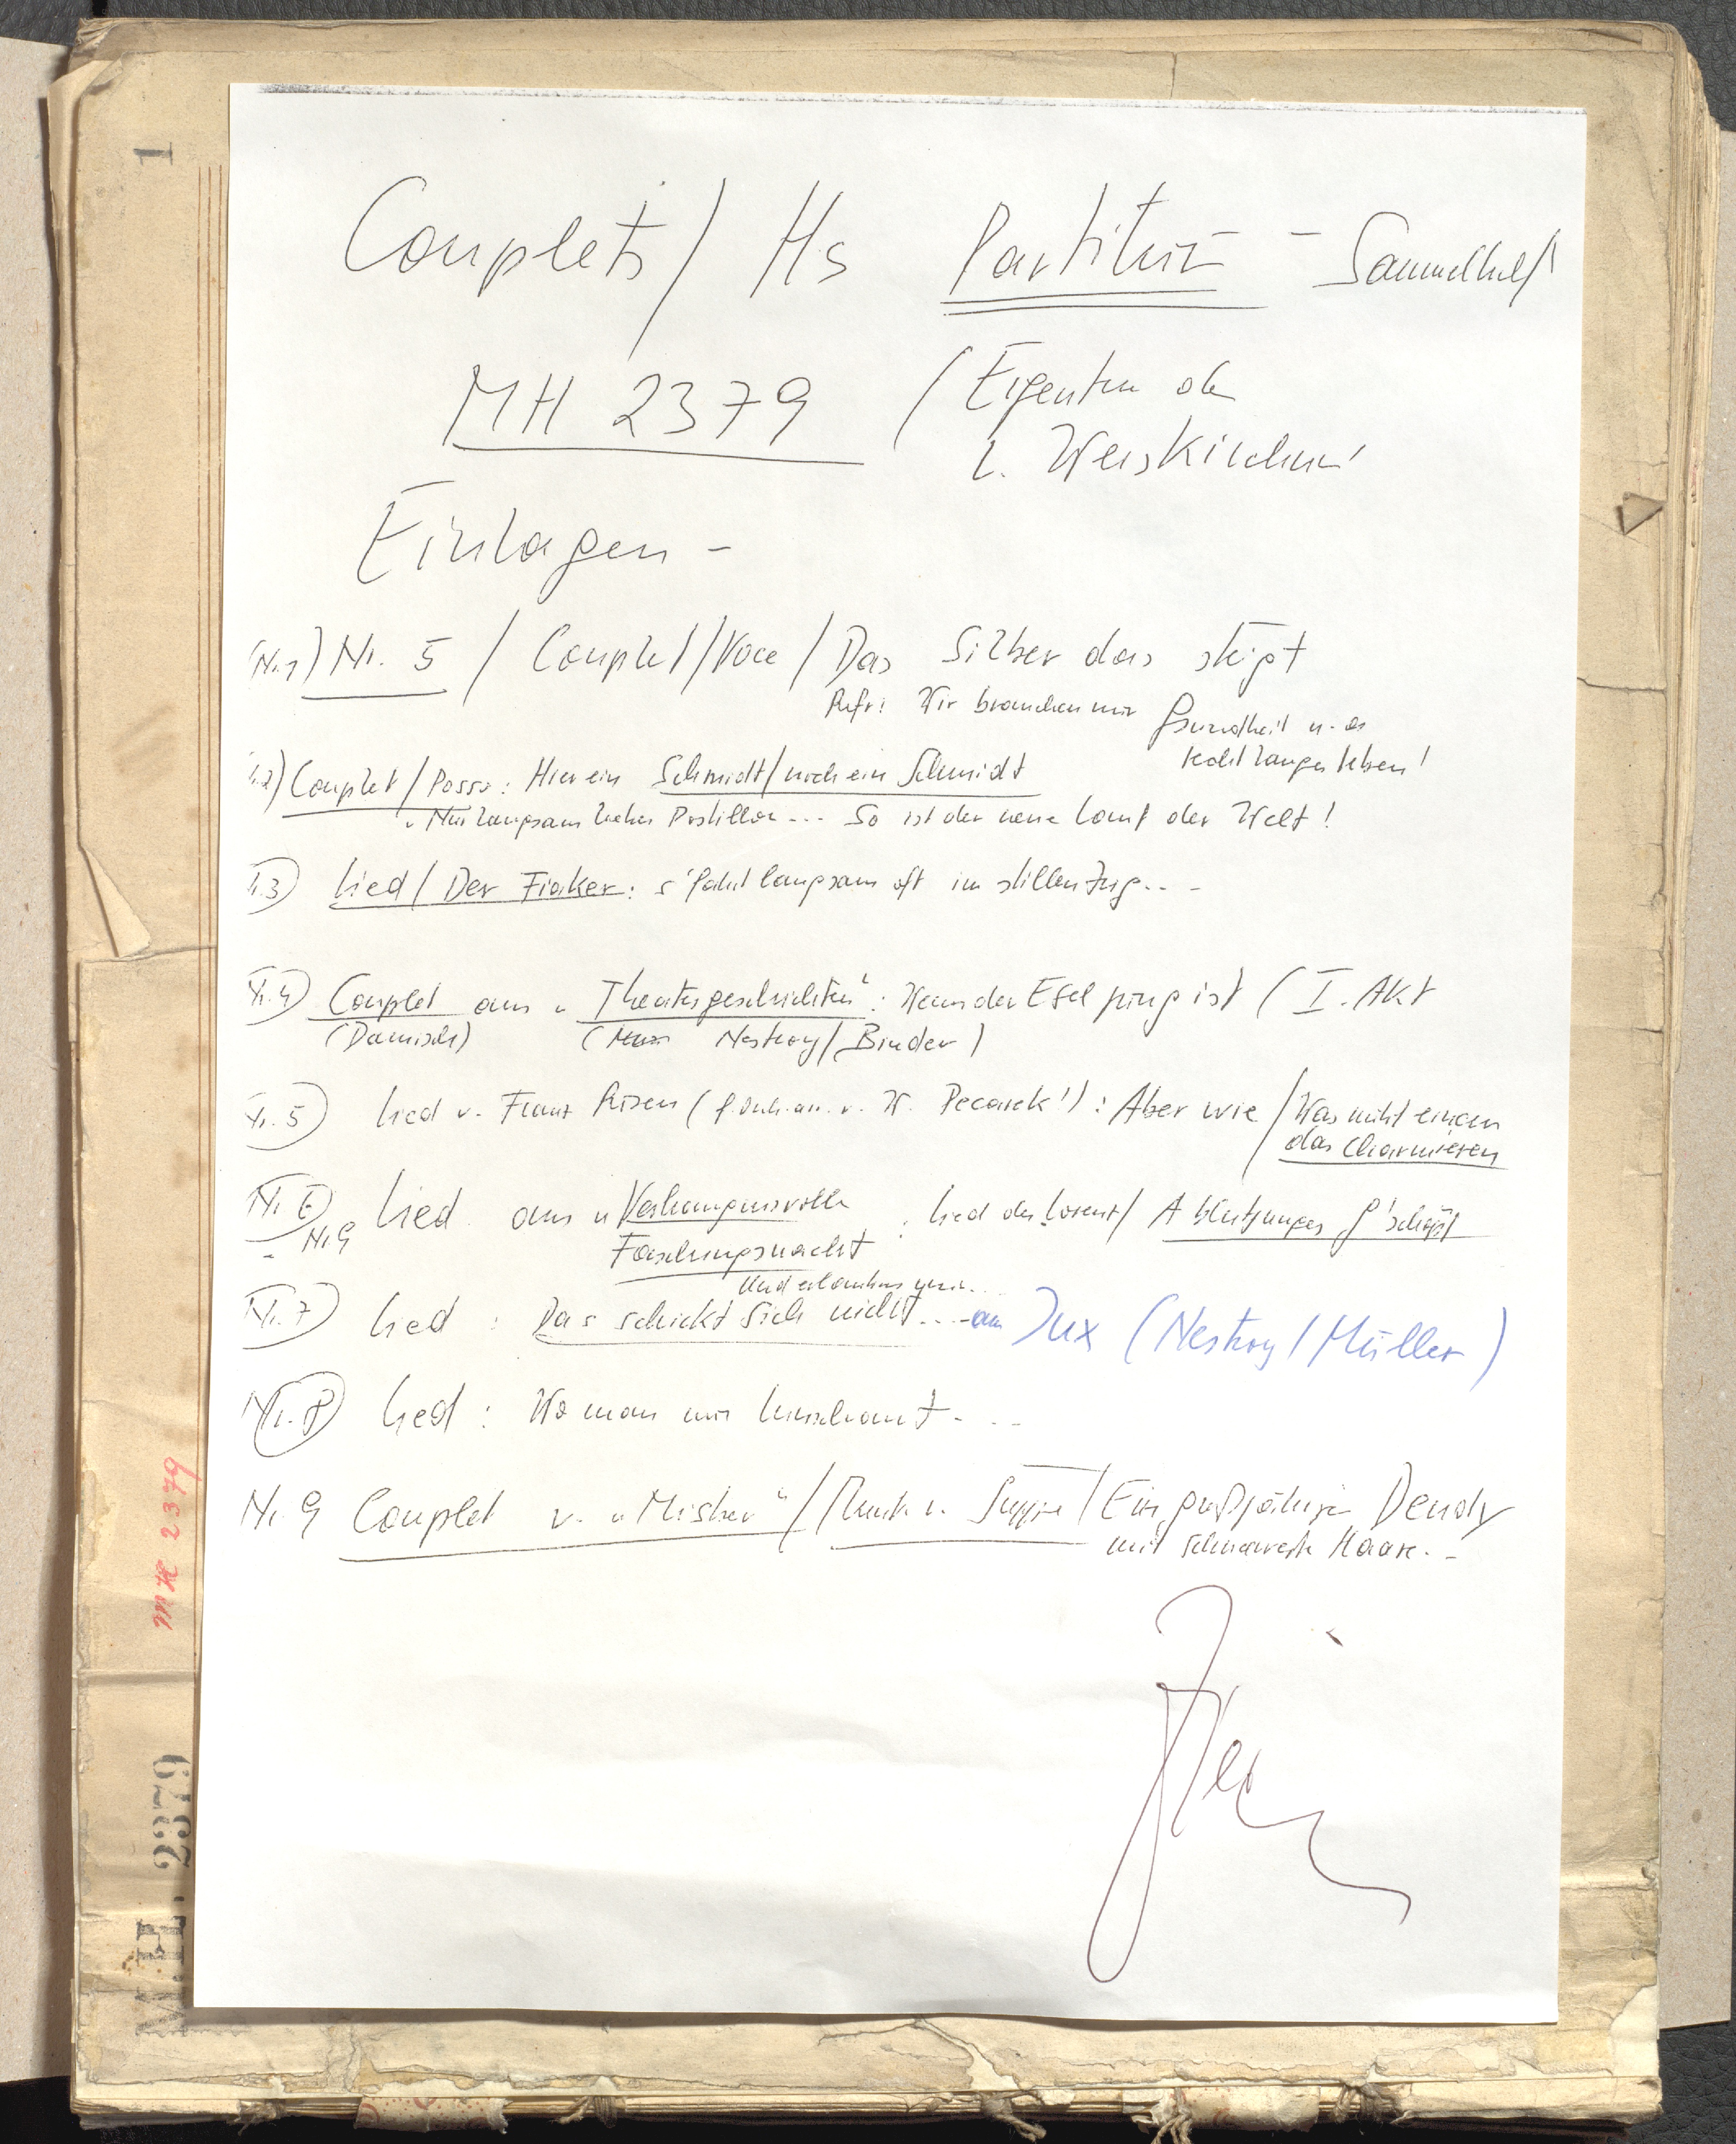 1
Couplets / Hs Partitur - Sammelheft
MH 2379 (Eigentum der
L. Weiskirchner
Einlagen -
(Nr. 1) Nr. 5 / Couplet / Voce / Das Silber das steigt
Refr: Wir brauchen nur Gsundheit u. a
recht langes Leben!
2) Couplet / Posse: Hier ein Schmidt / noch ein Schmidt
"Nur langsam lieber Postillon... So ist der neue Lauf der Welt!
3) Lied / Der Fiaker: s'fahrt langsam oft im stillen Zug...
Nr. 4) Couplet aus "Theatergeschichten": Wenn der Esel jung ist (I. Akt
(Damisch) (Nestroy / Binder)
Nr. 5) Lied v. Franz W. Pecasek!): Aber wie / Was nicht einem
das Charmieren
Nr. 6) Lied aus "Verhängnisvolle : Lied des Lorenz / A blutjunges G'schöpf
Nr. 9
Faschingsnacht
Und erlauben
Nr. 7) Lied: Das schickt sich nicht... aus Jux (Nestroy / Müller)
Nr. 8) Lied: Wo man nur hinschaut...
Nr. 9 Couplet v. "Mister" / Musik v. Suppé / Ein großjähriger Dendy
mit schwarze Haare..
MH 2379
M.H. 2379